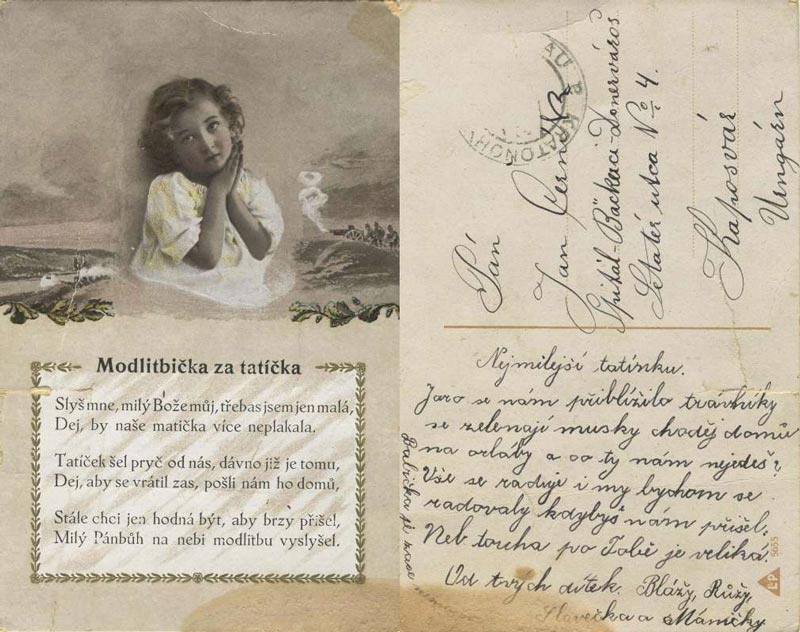 Modlitbička za tatíčka
Slyš mne, milý Bože můj, třebas jsem jen malá,
Dej, by naše matička více neplakala.
Tatíček šel pryč od nás, dávno již je tomu,
Dej, aby se vrátil zas, pošli nám ho domů,
Stále chci jen hodná být, aby brzy přišel,
Milý Pánbůh na nebi modlitbu vyslyšel.
KRATONOH
Pán
Jan Černý
Spital-Backaci-Donerváros
utca No 4.
Kaposvár
Ungárn
Nejmilejší tatínku.
Jaro se nám přiblížilo trávníky
se zelenají musky choděj domů
na orláby a co ty nám nejedeš?
Vše se raduje i my bychom se
radovaly kdybys nám přišel,
Neb touha po Tobě je veliká.
Od tvých dítek. Blážy, Růžy,
Slávečka a Máničky
Babička je zase
5055